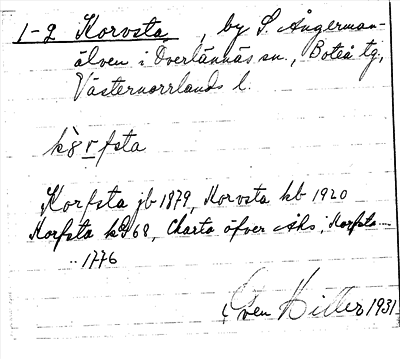 1-2 Korvsta, by S. Ångerman-
älven i Överlännäs sn., Boteå tg,
Västernorrlands l.
Korfsta jb 1879, Korvsta kb 1920
Korfsta 68, Charta öfver Korfsta
1776
Hitter 1931